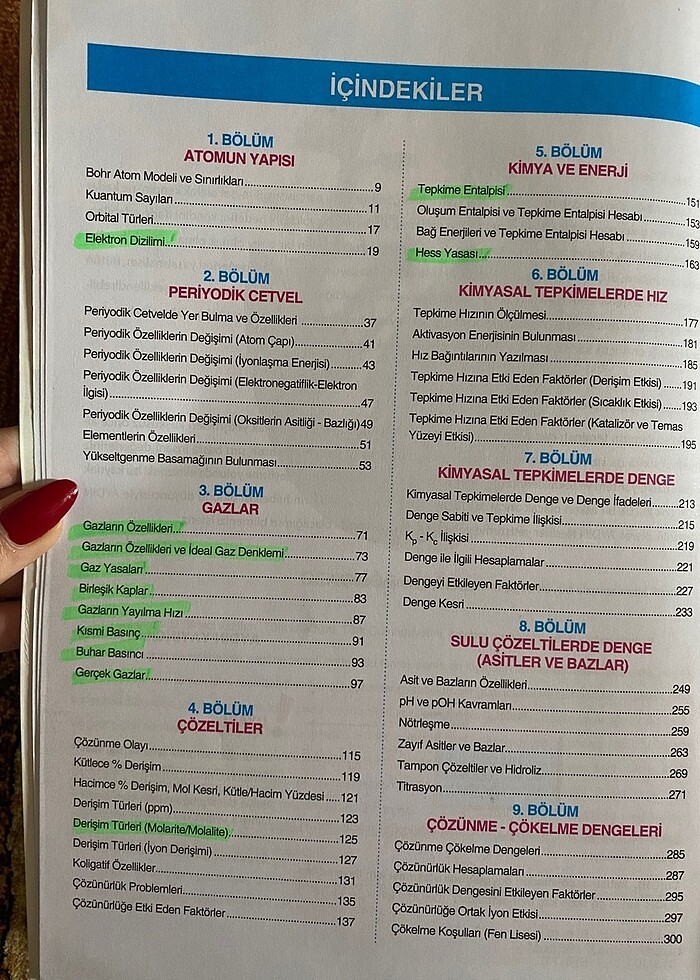 İÇİNDEKİLER
1. BÖLÜM
ATOMUN YAPISI
Bohr Atom Modeli ve Sınırlıkları....................9
Kuantum Sayıları....................11
Orbital Türleri....................17
Elektron Dizilimi....................19
2. BÖLÜM
PERİYODİK CETVEL
Periyodik Cetvelde Yer Bulma ve Özellikleri ....................37
Periyodik Özelliklerin Değişimi (Atom Çapı)....................41
Periyodik Özelliklerin Değişimi (İyonlaşma Enerjisi)....................43
Periyodik Özelliklerin Değişimi (Elektronegatiflik-Elektron
İlgisi)....................47
Periyodik Özelliklerin Değişimi (Oksitlerin Asitliği - Bazlığı)49
Elementlerin Özellikleri....................51
Yükseltgenme Basamağının Bulunması....................53
3. BÖLÜM
GAZLAR
Gazların Özellikleri....................71
Gazların Özellikleri ve İdeal Gaz Denklemi....................73
Gaz Yasaları....................77
Birleşik Kaplar....................83
Gazların Yayılma Hızı....................87
Kısmi Basınç....................91
Buhar Basıncı....................93
Gerçek Gazlar....................97
4. BÖLÜM
ÇÖZELTİLER
Çözünme Olayı....................115
Kütlece % Derişim....................119
Hacimce % Derişim, Mol Kesri, Kütle/Hacim Yüzdesi .....121
Derişim Türleri (ppm)....................123
Derişim Türleri (Molarite/Molalite)....................125
Derişim Türleri (İyon Derişimi)....................127
Koligatif Özellikler....................131
Çözünürlük Problemleri....................135
Çözünürlüğe Etki Eden Faktörler....................137
5. BÖLÜM
KİMYA VE ENERJİ
Tepkime Entalpisi....................151
Oluşum Entalpisi ve Tepkime Entalpisi Hesabı....................153
Bağ Enerjileri ve Tepkime Entalpisi Hesabı....................159
Hess Yasası....................163
6. BÖLÜM
KİMYASAL TEPKİMELERDE HIZ
Tepkime Hızının Ölçülmesi....................177
Aktivasyon Enerjisinin Bulunması....................181
Hız Bağıntılarının Yazılması....................185
Tepkime Hızına Etki Eden Faktörler (Derişim Etkisi).....191
Tepkime Hızına Etki Eden Faktörler (Sıcaklık Etkisi).....193
Tepkime Hızına Etki Eden Faktörler (Katalizör ve Temas
Yüzeyi Etkisi)....................195
7. BÖLÜM
KİMYASAL TEPKİMELERDE DENGE
Kimyasal Tepkimelerde Denge ve Denge İfadeleri........213
Denge Sabiti ve Tepkime İlişkisi....................215
Kp - Kc İlişkisi....................219
Denge ile İlgili Hesaplamalar....................221
Dengeyi Etkileyen Faktörler....................227
Denge Kesri....................233
8. BÖLÜM
SULU ÇÖZELTİLERDE DENGE
(ASİTLER VE BAZLAR)
Asit ve Bazların Özellikleri....................249
pH ve pOH Kavramları....................255
Nötrleşme....................259
Zayıf Asitler ve Bazlar....................263
Tampon Çözeltiler ve Hidroliz....................269
Titrasyon....................271
9. BÖLÜM
ÇÖZÜNME - ÇÖKELME DENGELERİ
Çözünme Çökelme Dengeleri....................285
Çözünürlük Hesaplamaları....................287
Çözünürlük Dengesini Etkileyen Faktörler....................295
Çözünürlüğe Ortak İyon Etkisi....................297
Çökelme Koşulları (Fen Lisesi)....................300